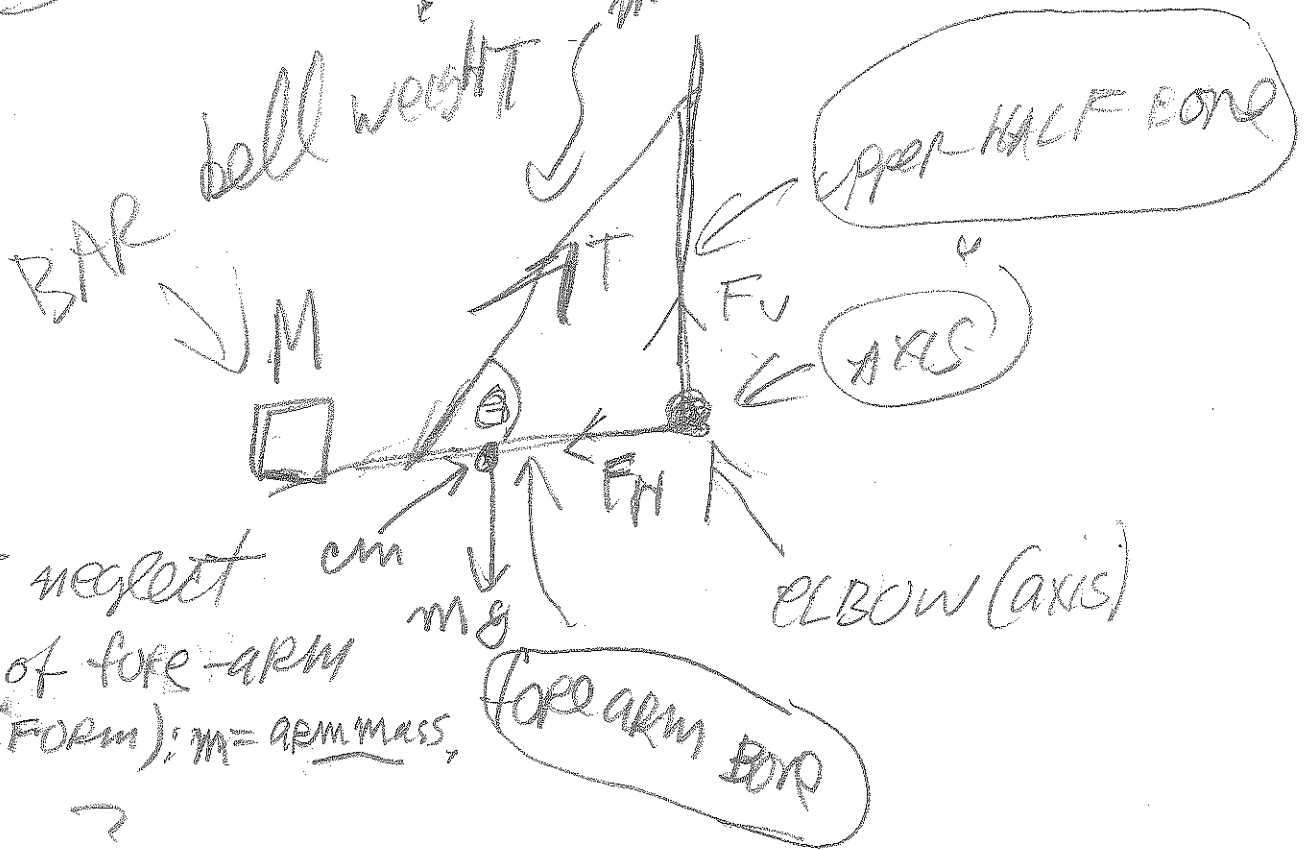 bell weigHT
BAR
M
T
upper HALF BONE
Fv
AXIS
θ
FH
neglect
cm
mg
elBOW (axis)
of fore-arm
FORM): m = arm mass,
fore arm
Bone